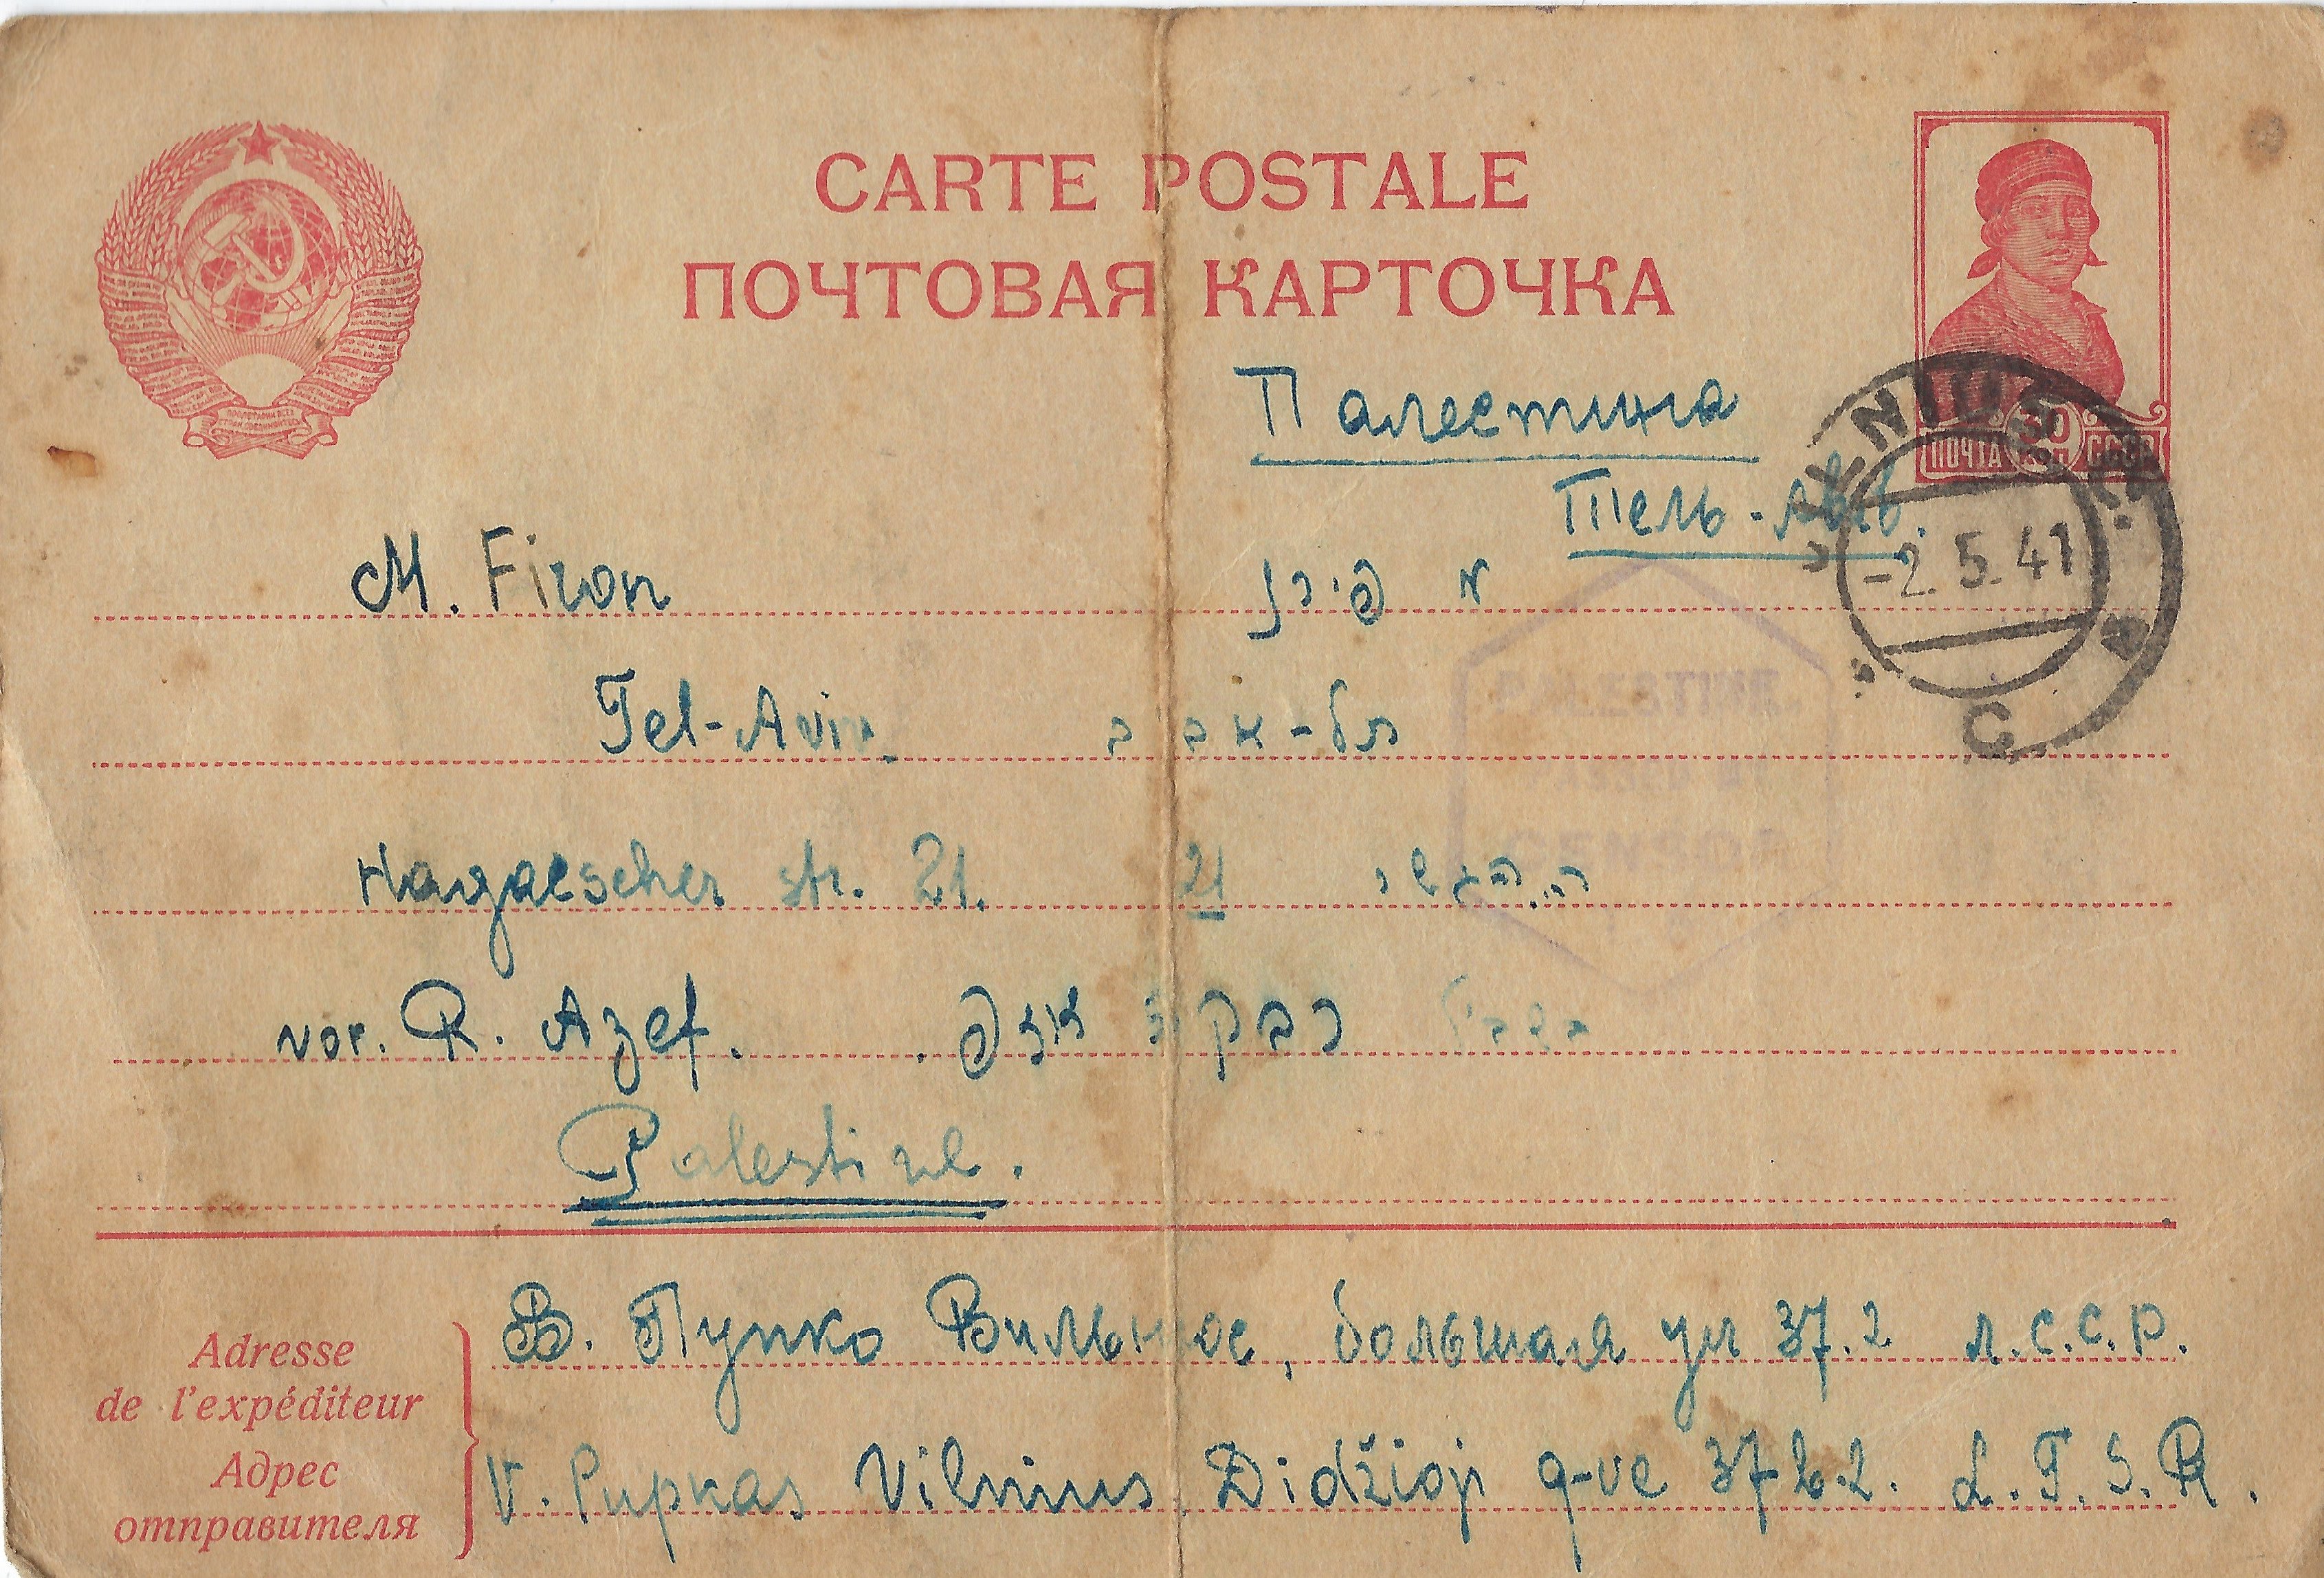 CARTE POSTALE
ПОЧТОВАЯ КАРТОЧКА
ПОЧТА 30 КОП СССР
Палестина
Тель-Авив.
VILNIUS
-2.5.41
M. Firon
PALESTINE
CENSOR
Tel-Aviv.
תל-אביב
str. 21.
21
R. Azef.
Palestine.
Adresse
de l'expéditeur
Адрес
отправителя
В. Пупко Вильнюс, большая ул 37.2 л.с.с.р.
V. Pupkas Vilnius, Didžioji g-ve 37 b.2. L.T.S.R.